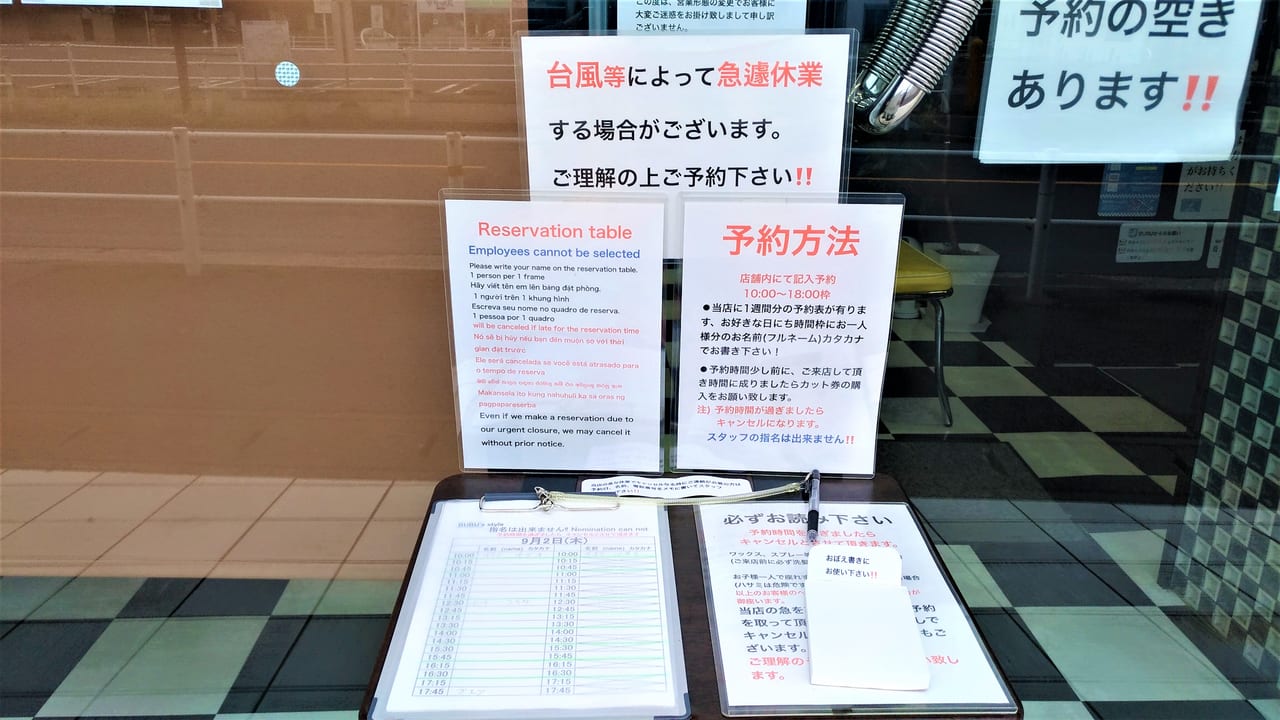 この度は、営業形態の変更でお客様に
大変ご迷惑をお掛け致しまして申し訳
ございません。
予約の空き
あります‼
台風等によって急遽休業
する場合がございます。
ご理解の上ご予約下さい‼
がお持ちく
ださい‼
Reservation table
Employees cannot be selected
Please write your name on the reservation table.
1 person per 1 frame
Hãy viết tên em lên bảng đặt phòng.
1 người trên 1 khung hình
Escreva seu nome no quadro de reserva.
1 pessoa por 1 quadro
will be canceled if late for the reservation time
Nó sẽ bị hủy nếu bạn đến muộn so với thời
gian đặt trước
Ele será cancelada se você está atrasado para
o tempo de reserva
Makansela ito kung nahuhuli ka sa oras ng
pagpapareserba
Even if we make a reservation due to
our urgent closure, we may cancel it
without prior notice.
予約方法
店舗内にて記入予約
10:00〜18:00枠
●当店に1週間分の予約表が有りま
す、お好きな日にち時間枠にお一人
様分のお名前(フルネーム)カタカナ
でお書き下さい！
●予約時間少し前に、ご来店して頂
き時間に成りましたらカット券の購
入をお願い致します。
注) 予約時間が過ぎましたら
キャンセルになります。
スタッフの指名は出来ません‼
BUBU's style
指名は出来ません‼ Nomination can not
9月2日(木)
名前 (name) カタカナ 名前 (name) カタカナ
10:00 10:00
10:45
11:00 11:00
11:15
11:30 11:30
11:45
12:30 12:30
12:45 12:45
13:15
13:30 13:30
14:00 14:00
14:30 14:30
15:15
15:45 15:45
16:15 16:15
16:30 16:30
17:15 17:15
17:45 17:45
必ずお読み下さい
予約時間を ぎましたら
キャンセルと せて頂きます。
ワックス、スプレー
(ご来店前に必ず洗髪
お子様一人で座れ 場合
(ハサミは危険です
以上のお客様の が
御座います。
当店の急を 予約
を取って頂 しで
キャンセル もご
ざいます。
ご理解の い致し
ます。
おぼえ書きに
お使い下さい‼